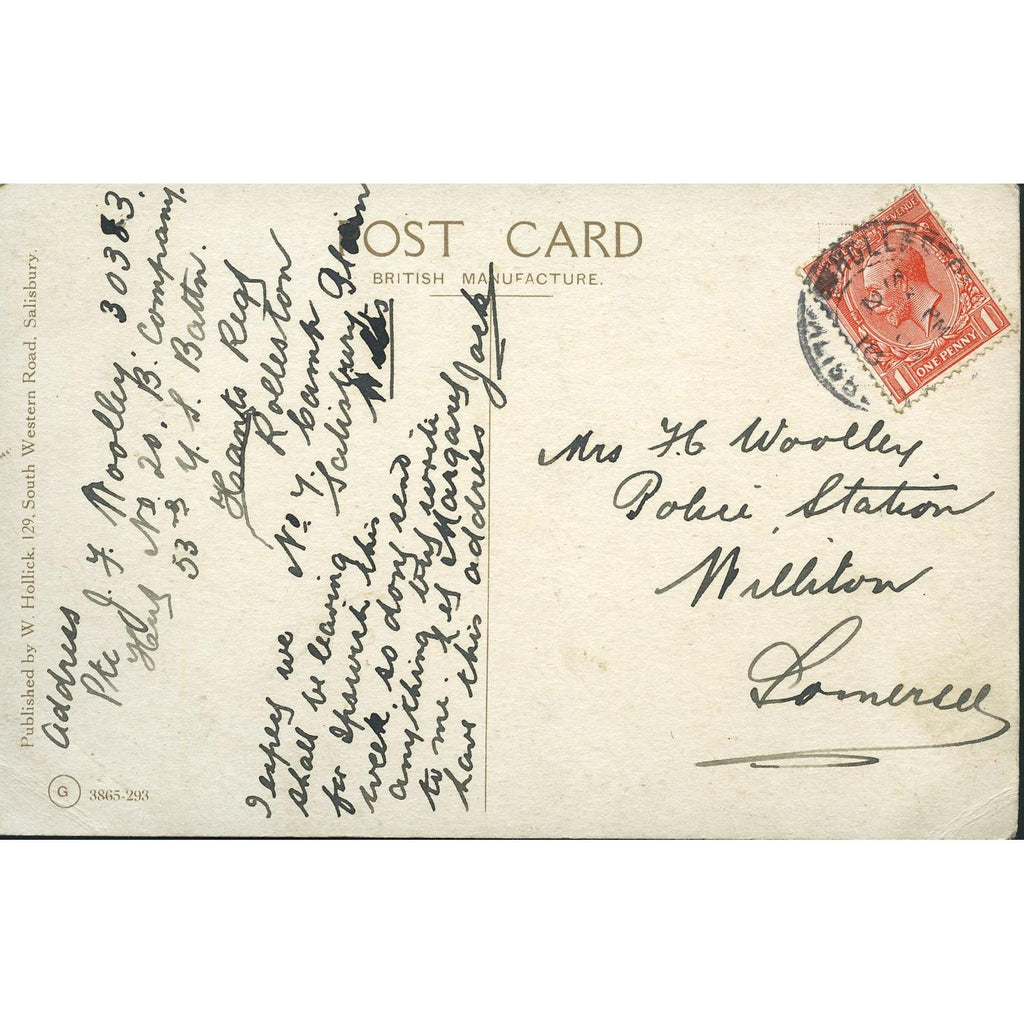 POST CARD
BRITISH MANUFACTURE.
Published by W. Hollick, 129, South Western Road, Salisbury.
G 3865-293
Address
Pte J. F. Woolley. 30383.
No 20. B. Company.
53rd Y. S. Battn.
Hants Regt
Rolleston
No. 7. Camp
Salisbury Plain
Wilts
I expect we
shall be leaving
for Ipswich this
week so dont send
anything only write
to me. Let Margaret
have this address
Jack
Mrs F. G Woolley
Police Station
Williton
Somerset
REVENUE
1 ONE PENNY 1